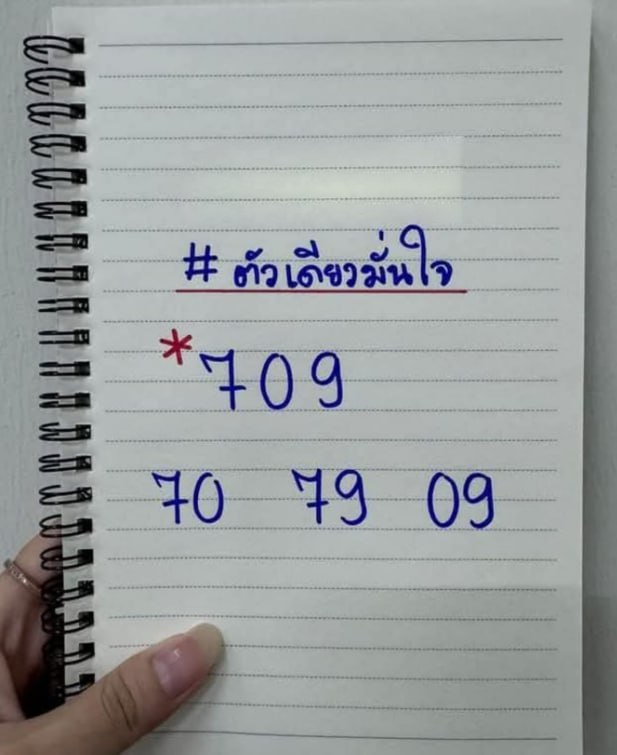 # ตัวเดียวมั่นใจ
*709
70 79 09